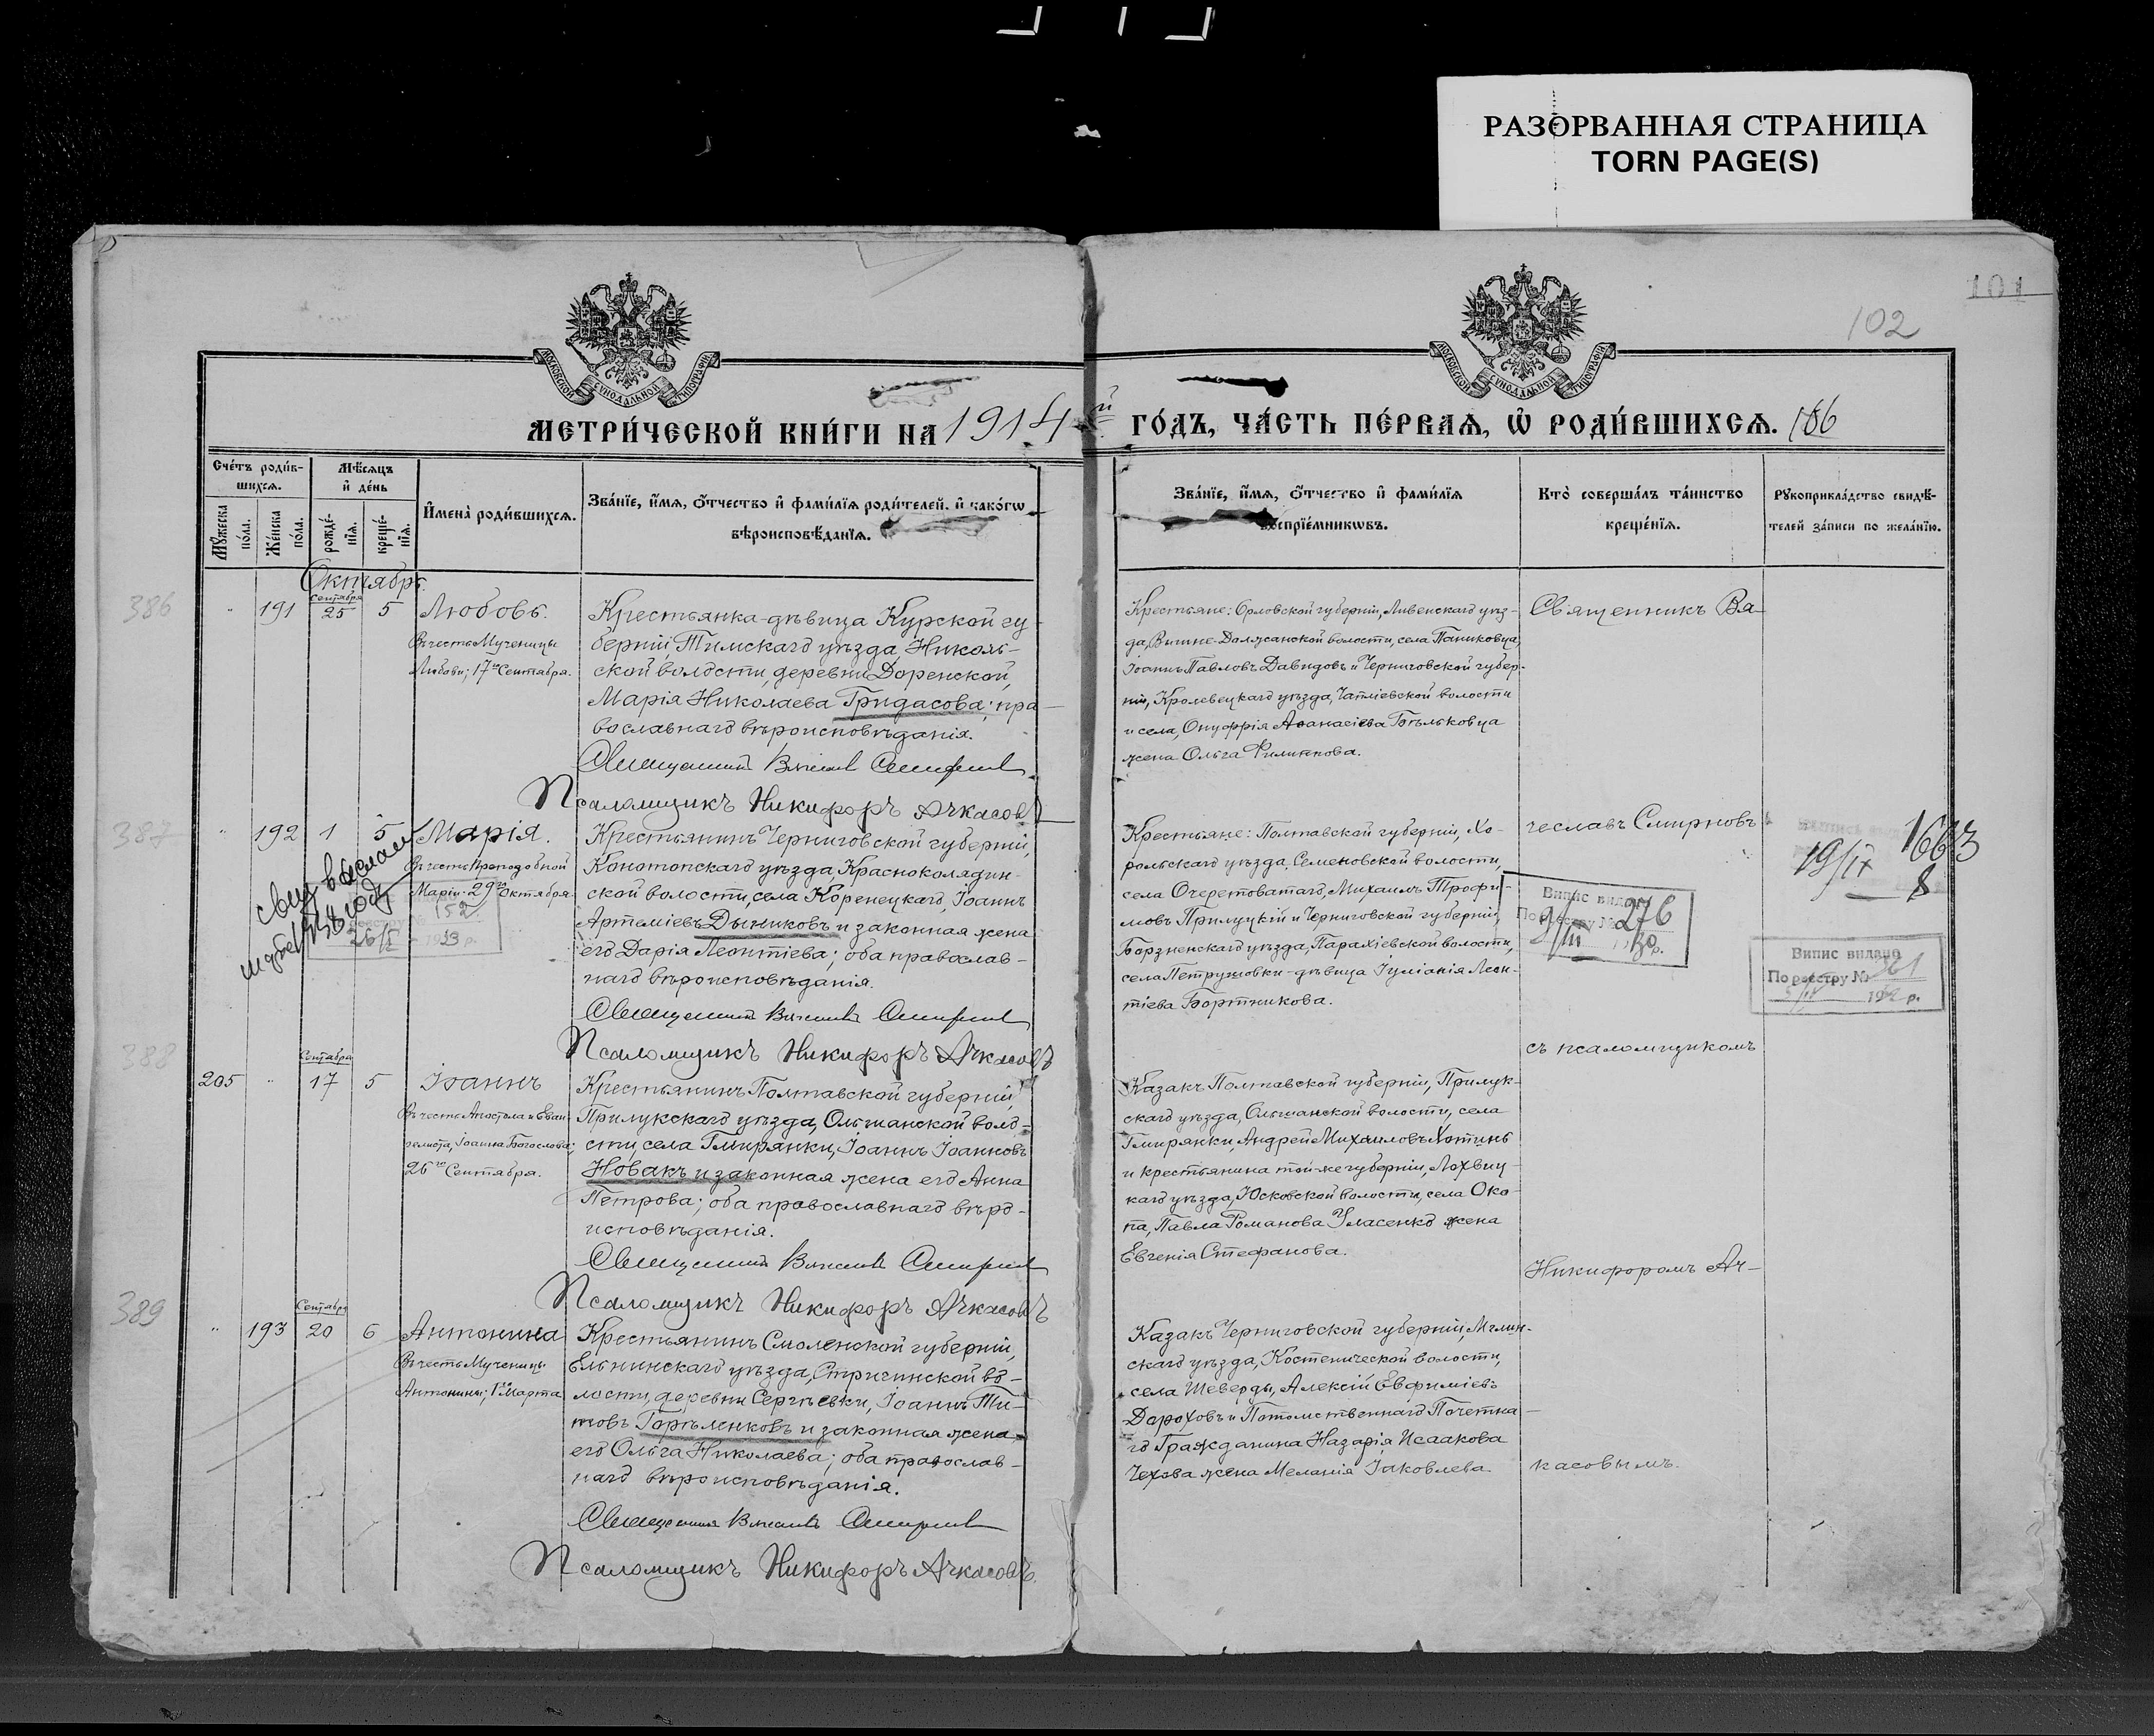 РАЗОРВАННАЯ СТРАНИЦА
TORN PAGE(S)
101
102
МОСКОВСКОЙ СУНОДАЛЬНОЙ ТИПОГРАФІИ
МОСКОВСКОЙ СУНОДАЛЬНОЙ ТИПОГРАФІИ
МЕТРИ́ЧЕСКОЙ КНИ́ГИ НА 1914-й ГО́ДЪ, ЧА́СТЬ ПЕ́РВАѦ, Ѡ҆ РОДИ́ВШИХСѦ. 186
Сче́тъ роди́в-
шихсѧ.
Мꙋ́жеска по́ла.
Же́нска по́ла.
Мѣ́сѧцъ
и҆ де́нь
рожде́-
нїѧ.
креще́-
нїѧ.
И҆мена̀ роди́вшихсѧ.
Зва́нїе, и҆́мѧ, ѻ҆́тчество и҆ фами́лїѧ роди́телей, и҆ како́гѡ
вѣроисповѣ́данїѧ.
Зва́нїе, и҆́мѧ, ѻ҆́тчество и҆ фами́лїѧ
воспрїе́мникѡвъ.
Кто̀ соверша́лъ та́инство
креще́нїѧ.
Рꙋкоприкла́дство свидѣ́-
телей за́писи по жела́нїю.
Октябрь.
386
191
Сентября
25
5
Любовь.
Въ честь Мученицы
Любови; 17го Сентября.
Крестьянка-дѣвица Курской гу-
берніи, Тимскаго уѣзда, Николь-
ской волости, деревни Доренской,
Марія Николаева Гридасова; пра-
вославнаго вѣроисповѣданія.
Священникъ Вячеславъ Смирновъ
Псаломщикъ Никифоръ Ачкасовъ
Крестьяне: Орловской губерніи, Ливенскаго уѣз-
да, Вышне-Должанской волости, села Паниковца,
Іоаннъ Павловъ Давидовъ и Черниговской губер-
ніи, Кролевецкаго уѣзда, Чапліевской волости
и села, Онуфрія Аѳанасіева Бѣльковца
жена Ольга Филиппова.
Священникъ Вя-
387
192
1
5
Марія.
Въ честь Преподобной
Маріи; 29го Октября
152
26/I 1933 р.
Крестьянинъ Черниговской губерніи,
Конотопскаго уѣзда, Красноколядин-
ской волости, села Коренецкаго, Іоаннъ
Артеміевъ Дыниковъ и законная жена
его Дарія Леонтіева; оба православ-
наго вѣроисповѣданія.
Священникъ Вячеславъ Смирновъ
Псаломщикъ Никифоръ Ачкасовъ
Крестьяне: Полтавской губерніи, Хо-
рольскаго уѣзда, Семеновской волости,
села Очеретоватаго, Михаилъ Трофи-
мовъ Прилуцкій и Черниговской губерніи,
Борзненскаго уѣзда, Парафіевской волости,
села Петрушовки-дѣвица Іуліанія Леон-
тіева Бортникова.
чеславъ Смирновъ
1663
19/IX
8
Випис видано
По реестру № 276
9/III 1930 р.
Випис видано
По реестру № 361
192 р.
съ псаломщикомъ
388
205
Сентября
17
5
Іоаннъ
Въ честь Апостола и Еван-
гелиста, Іоанна Богослова;
26го Сентября.
Крестьянинъ Полтавской губерніи,
Прилукскаго уѣзда, Ольшанской воло-
сти, села Гмирянки, Іоаннъ Іоанновъ
Новакъ и законная жена его Анна
Петрова; оба православнаго вѣро-
исповѣданія.
Священникъ Вячеславъ Смирновъ
Псаломщикъ Никифоръ Ачкасовъ
Казакъ Полтавской губерніи, Прилук-
скаго уѣзда, Ольшанской волости, села
Гмирянки, Андрей Михаиловъ Хотинь
и крестьянина той-же губерніи, Лохвиц-
каго уѣзда, Юсковской волости, села Око-
па, Павла Романова Уласенко жена
Евгенія Стефанова.
Никифоромъ Ач-
389
193
Сентября
20
6
Антонина
Въ честь Мученицы
Антонины; 1го Марта
Крестьянинъ Смоленской губерніи,
Ельнинскаго уѣзда, Стригинской во-
лости, деревни Сергѣевки, Іоаннъ Ти-
товъ Горѣленковъ и законная жена
его Ольга Николаева; оба православ-
наго вѣроисповѣданія.
Священникъ Вячеславъ Смирновъ
Псаломщикъ Никифоръ Ачкасовъ.
Казакъ Черниговской губерніи, Мглин-
скаго уѣзда, Костеничской волости,
села Шеверды, Алексій Евфиміевъ
Дороховъ и Потомственнаго Почетна-
го Гражданина Назарія Исаакова
Чехова жена Меланія Іаковлева
касовымъ.